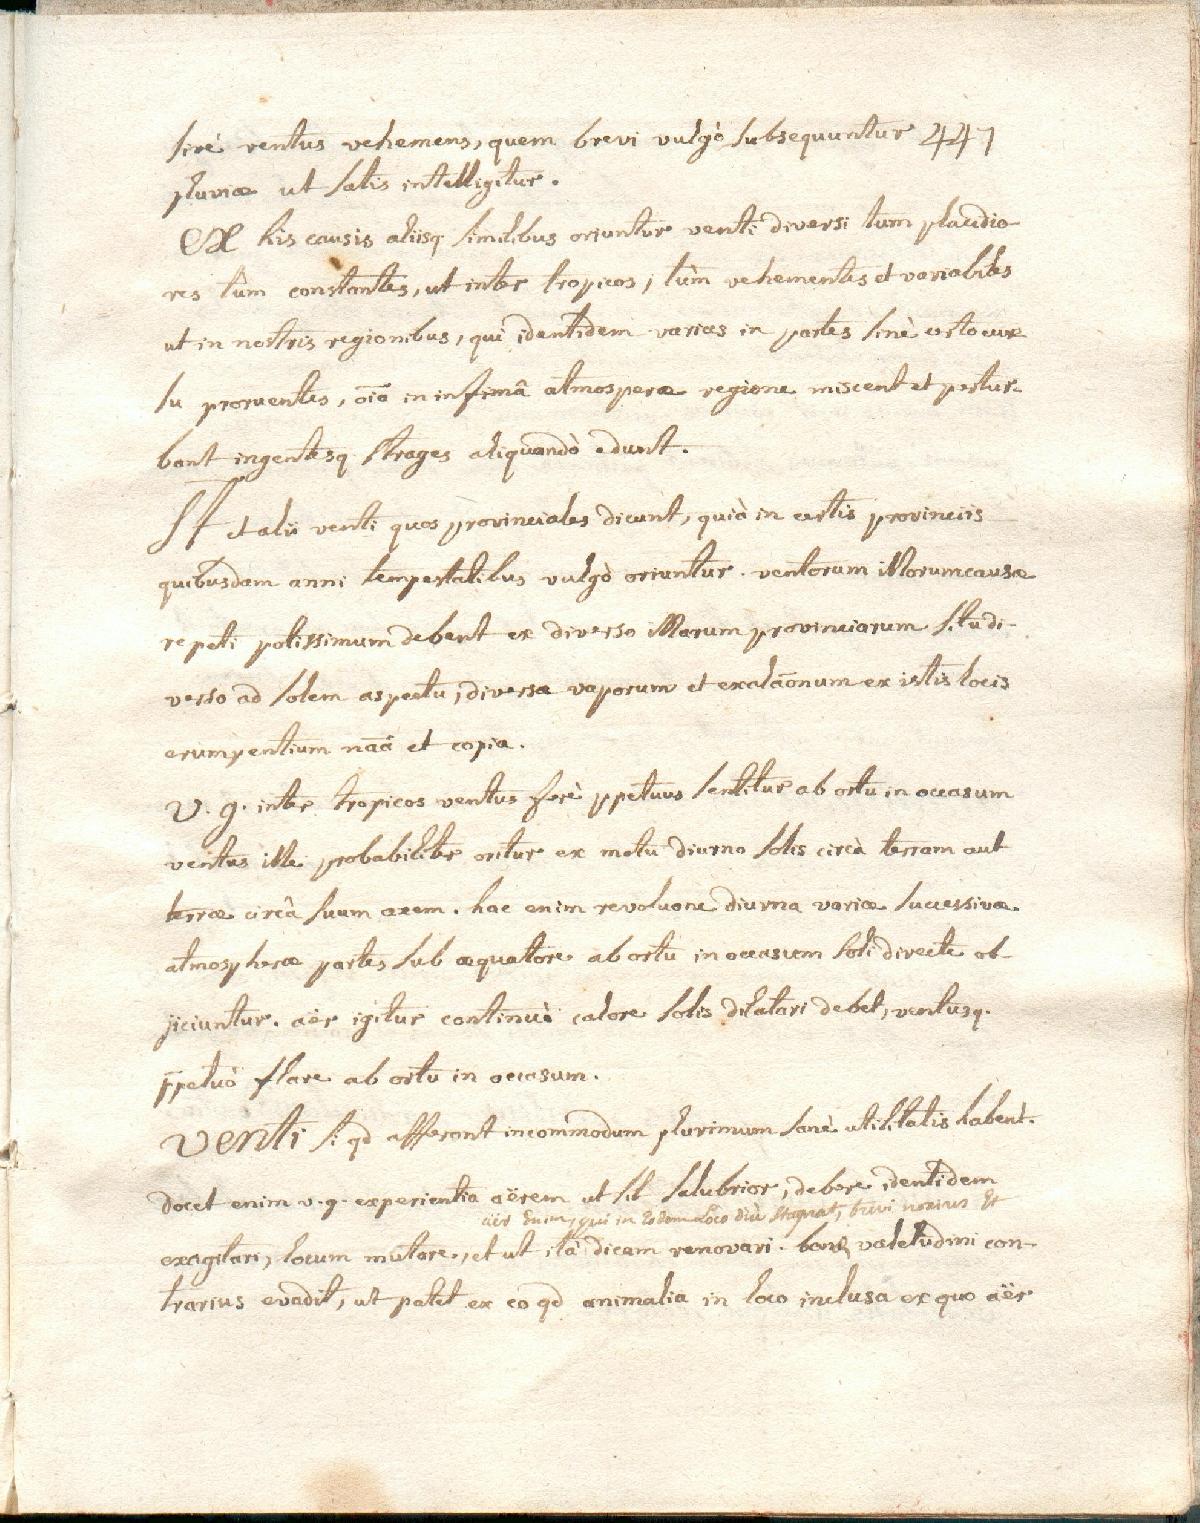 sirè ventus vehemens, quem brevi vulgò subsequuntur 447
pluviæ ut satis intelligitur.
Ex his causis aliisq similibus oriuntur venti diversi tum placidio-
res tùm constantes, ut inter tropicos, tùm vehementes et variabiles
ut in nostris regionibus, qui identidem varias in partes sinè certo cur
su proruentes, oīa in infimâ atmosperæ regione miscent et pertur-
bant ingentesq strages aliquandò edunt.
St et alii venti quos provinciales dicunt, quià in certis provinciis
quibusdam anni tempestatibus vulgò oriuntur. ventorum illorum causæ
repeti potissimum debent ex diverso illarum provinciarum situ di-
verso ad solem aspectu, diversa vaporum et exalāonum ex istis locis
erumpentium naā et copia.
V. g. inter tropicos ventus ferè ppetuus sentitur ab ortu in occasum
ventus ille probabiliter oritur ex motu diurno solis circà terram aut
terræ circâ suum axem. hac enim revoluone diurna variæ successivæ
atmospheræ partes sub æquatore ab ortu in occasum soli directe ob-
jiciuntur. aër igitur continuò calore solis dilatari debet, ventusq.
ppetuò flare ab ortu in occasum.
Venti si qd afferant incommodum plurimum sanè utilitatis habent.
docet enim v. g. experientia aërem ut sit salubrior, debere identidem
aër enim, qui in eodem loco diù stagnat, brevi noxius et
exagitari, locum mutare, et ut ità dicam renovari. bonæ valetudini con-
trarius evadit, ut patet ex eo qd animalia in loco inclusa ex quo aër